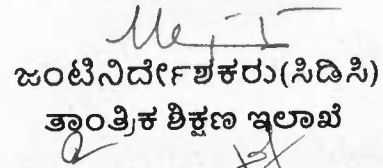 ಜಂಟಿನಿರ್ದೇಶಕರು(ಸಿಡಿಸಿ)
ತಾಂತ್ರಿಕ ಶಿಕ್ಷಣ ಇಲಾಖೆ